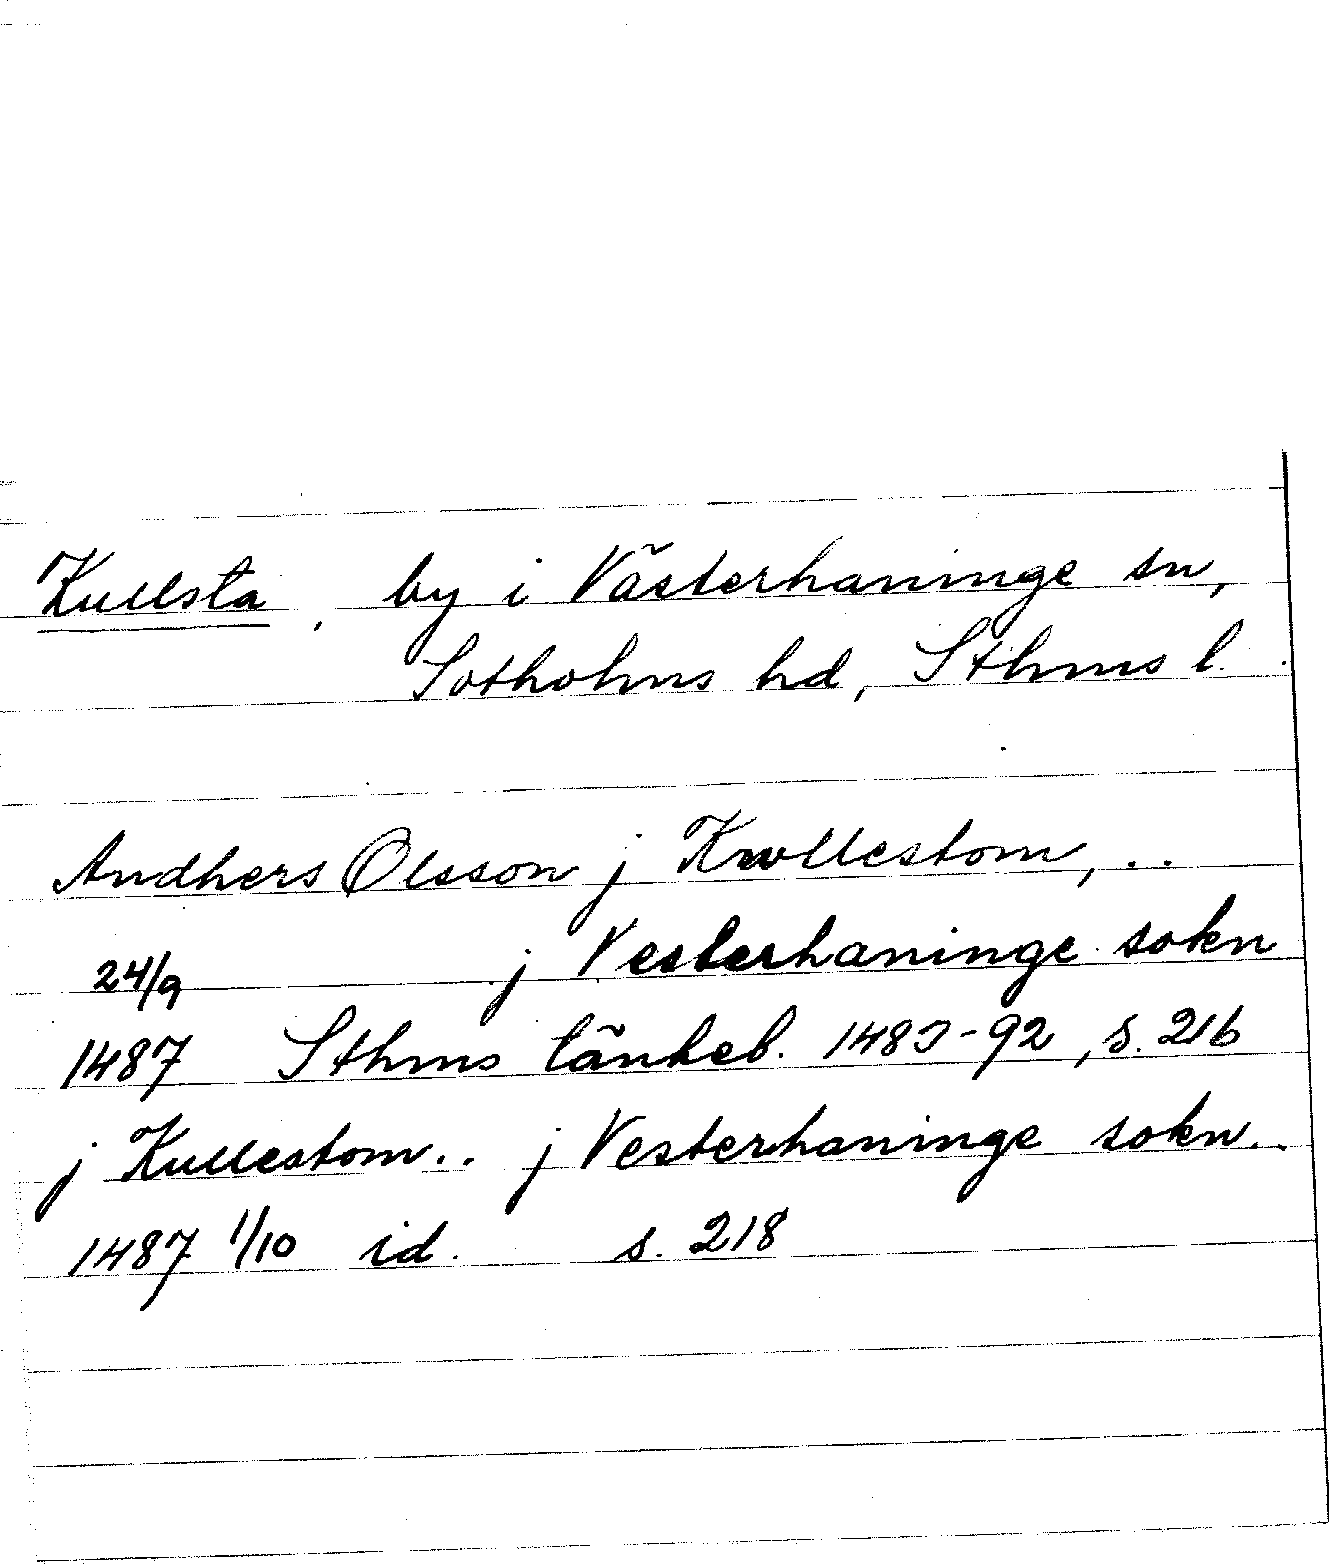 Kullsta, by i Västerhaninge sn,
Sotholms hd, Sthms l.
Andhers Olsson j Kwllestom, ..
24/9 j Vesterhaninge sokn
1487 Sthms tänkeb. 1483-92, s. 216
j Kullestom .. j Vesterhaninge sokn ..
1487 1/10 id. s. 218